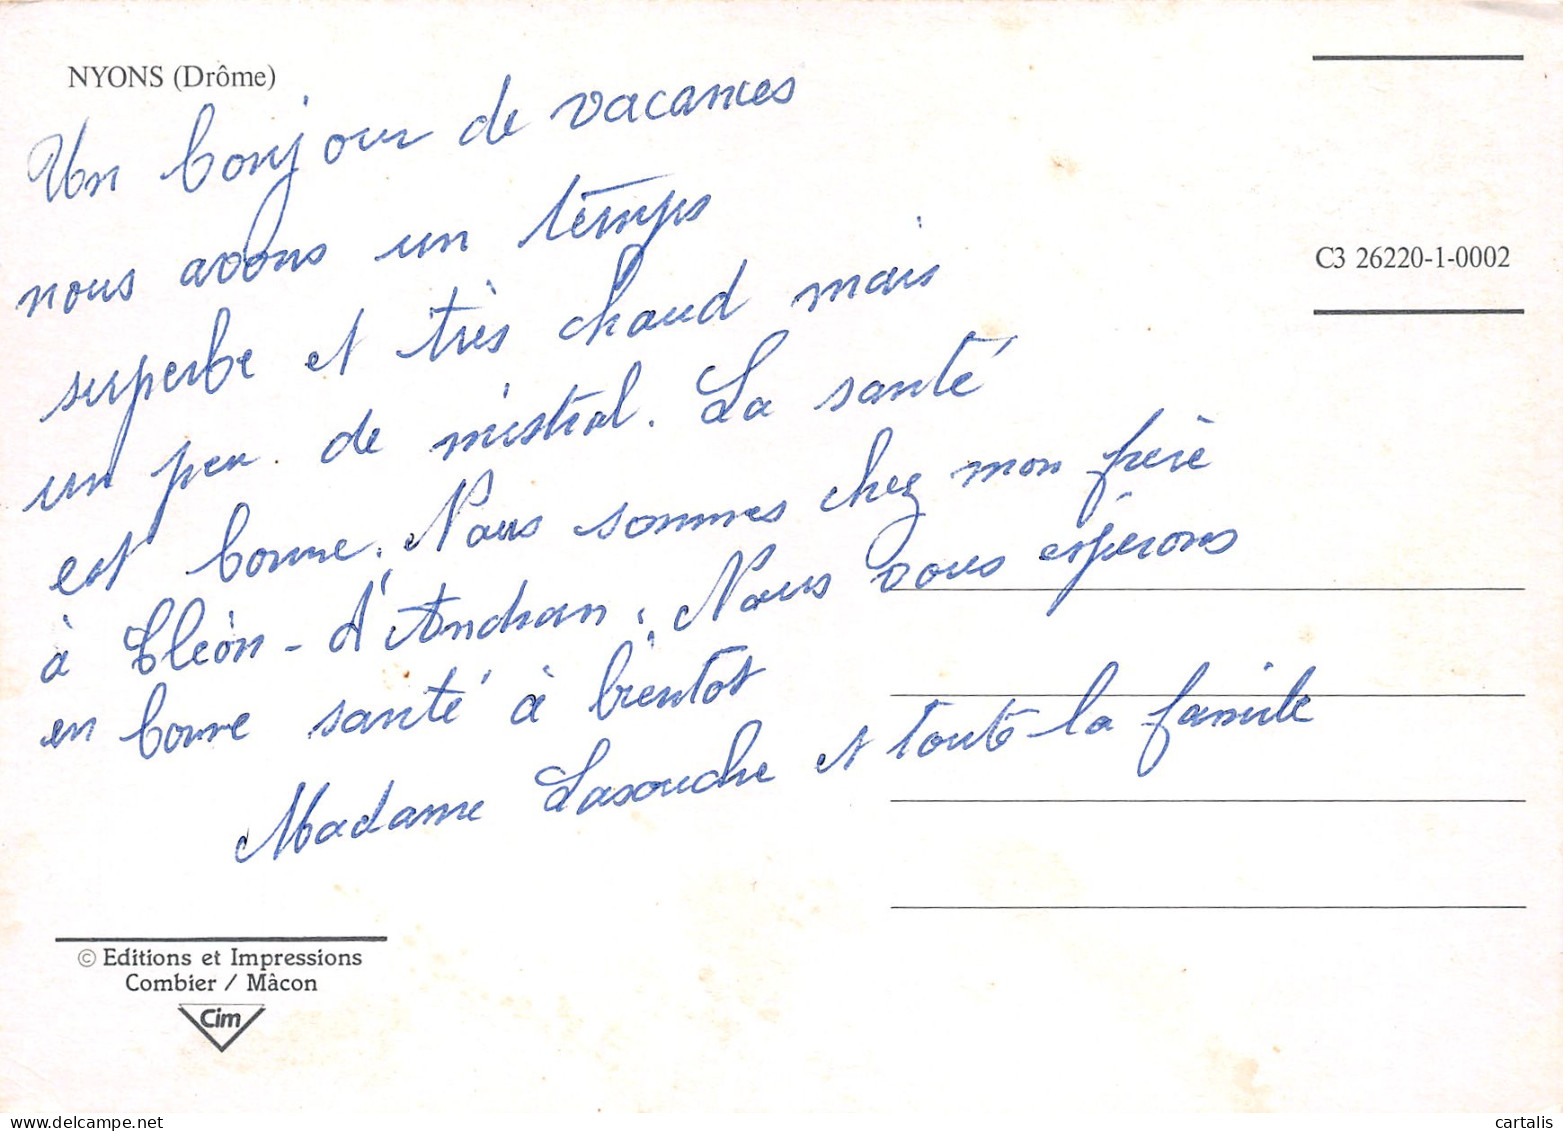 NYONS (Drôme)
Un bonjour de vacances
nous avons un temps
superbe et très chaud mais
un peu de mistral. La santé
est bonne. Nous sommes chez mon frère
à Cléon-d'Andran. Nous vous espérons
en bonne santé à bientôt
Madame Lasouche et toute la famille
C3 26220-1-0002
© Editions et Impressions
Combier / Mâcon
Cim
cartalis